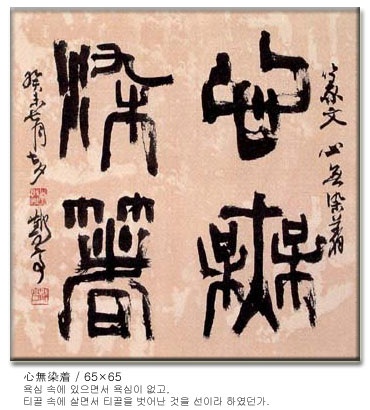 篆文 心無染着
心無
染着
癸未七月七夕
心無染着 / 65×65
욕심 속에 있으면서 욕심이 없고,
티끌 속에 살면서 티끌을 벗어난 것을 선이라 하였던가.